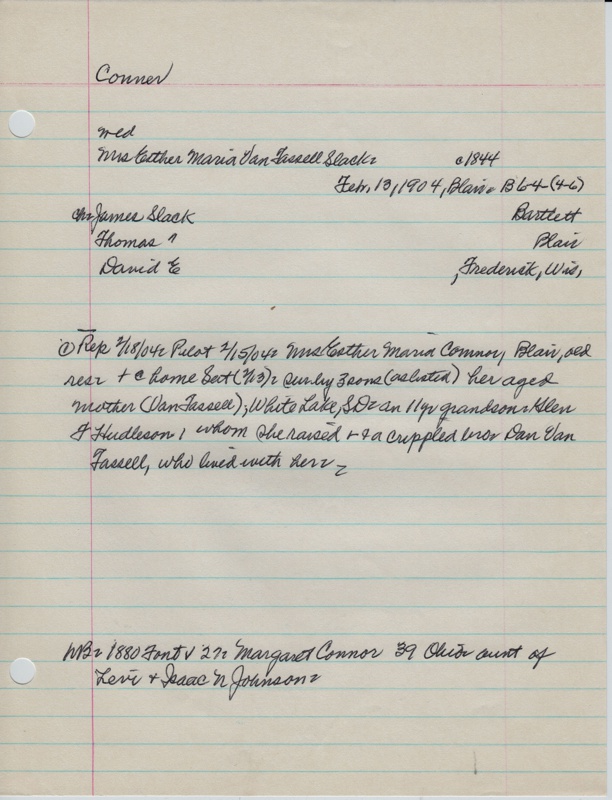 Conner
wed
Mrs Esther Maria Van Tassell Slack= c1844
Feb, 13, 1904, Blair= B64 (46)
ch=James Slack Bartlett
Thomas " Blair
David E , Frederick, Wis,
① Rep 2/18/04= Pilot 2/15/04= Mrs Esther Maria Connor, Blair, old
res= + @ home Sat (2/13)= sur by 3 sons (as listed) her aged
mother (Van Tassell), White Lake, S.D= an 11 yr grandson=Glen
F Hudleson, whom she raised + + a crippled bro= Dan Van
Tassell, who lived with her=
NB= 1880 Font v 27= Margaret Connor 39 Ohio= aunt of
Levi + Isaac N Johnson=